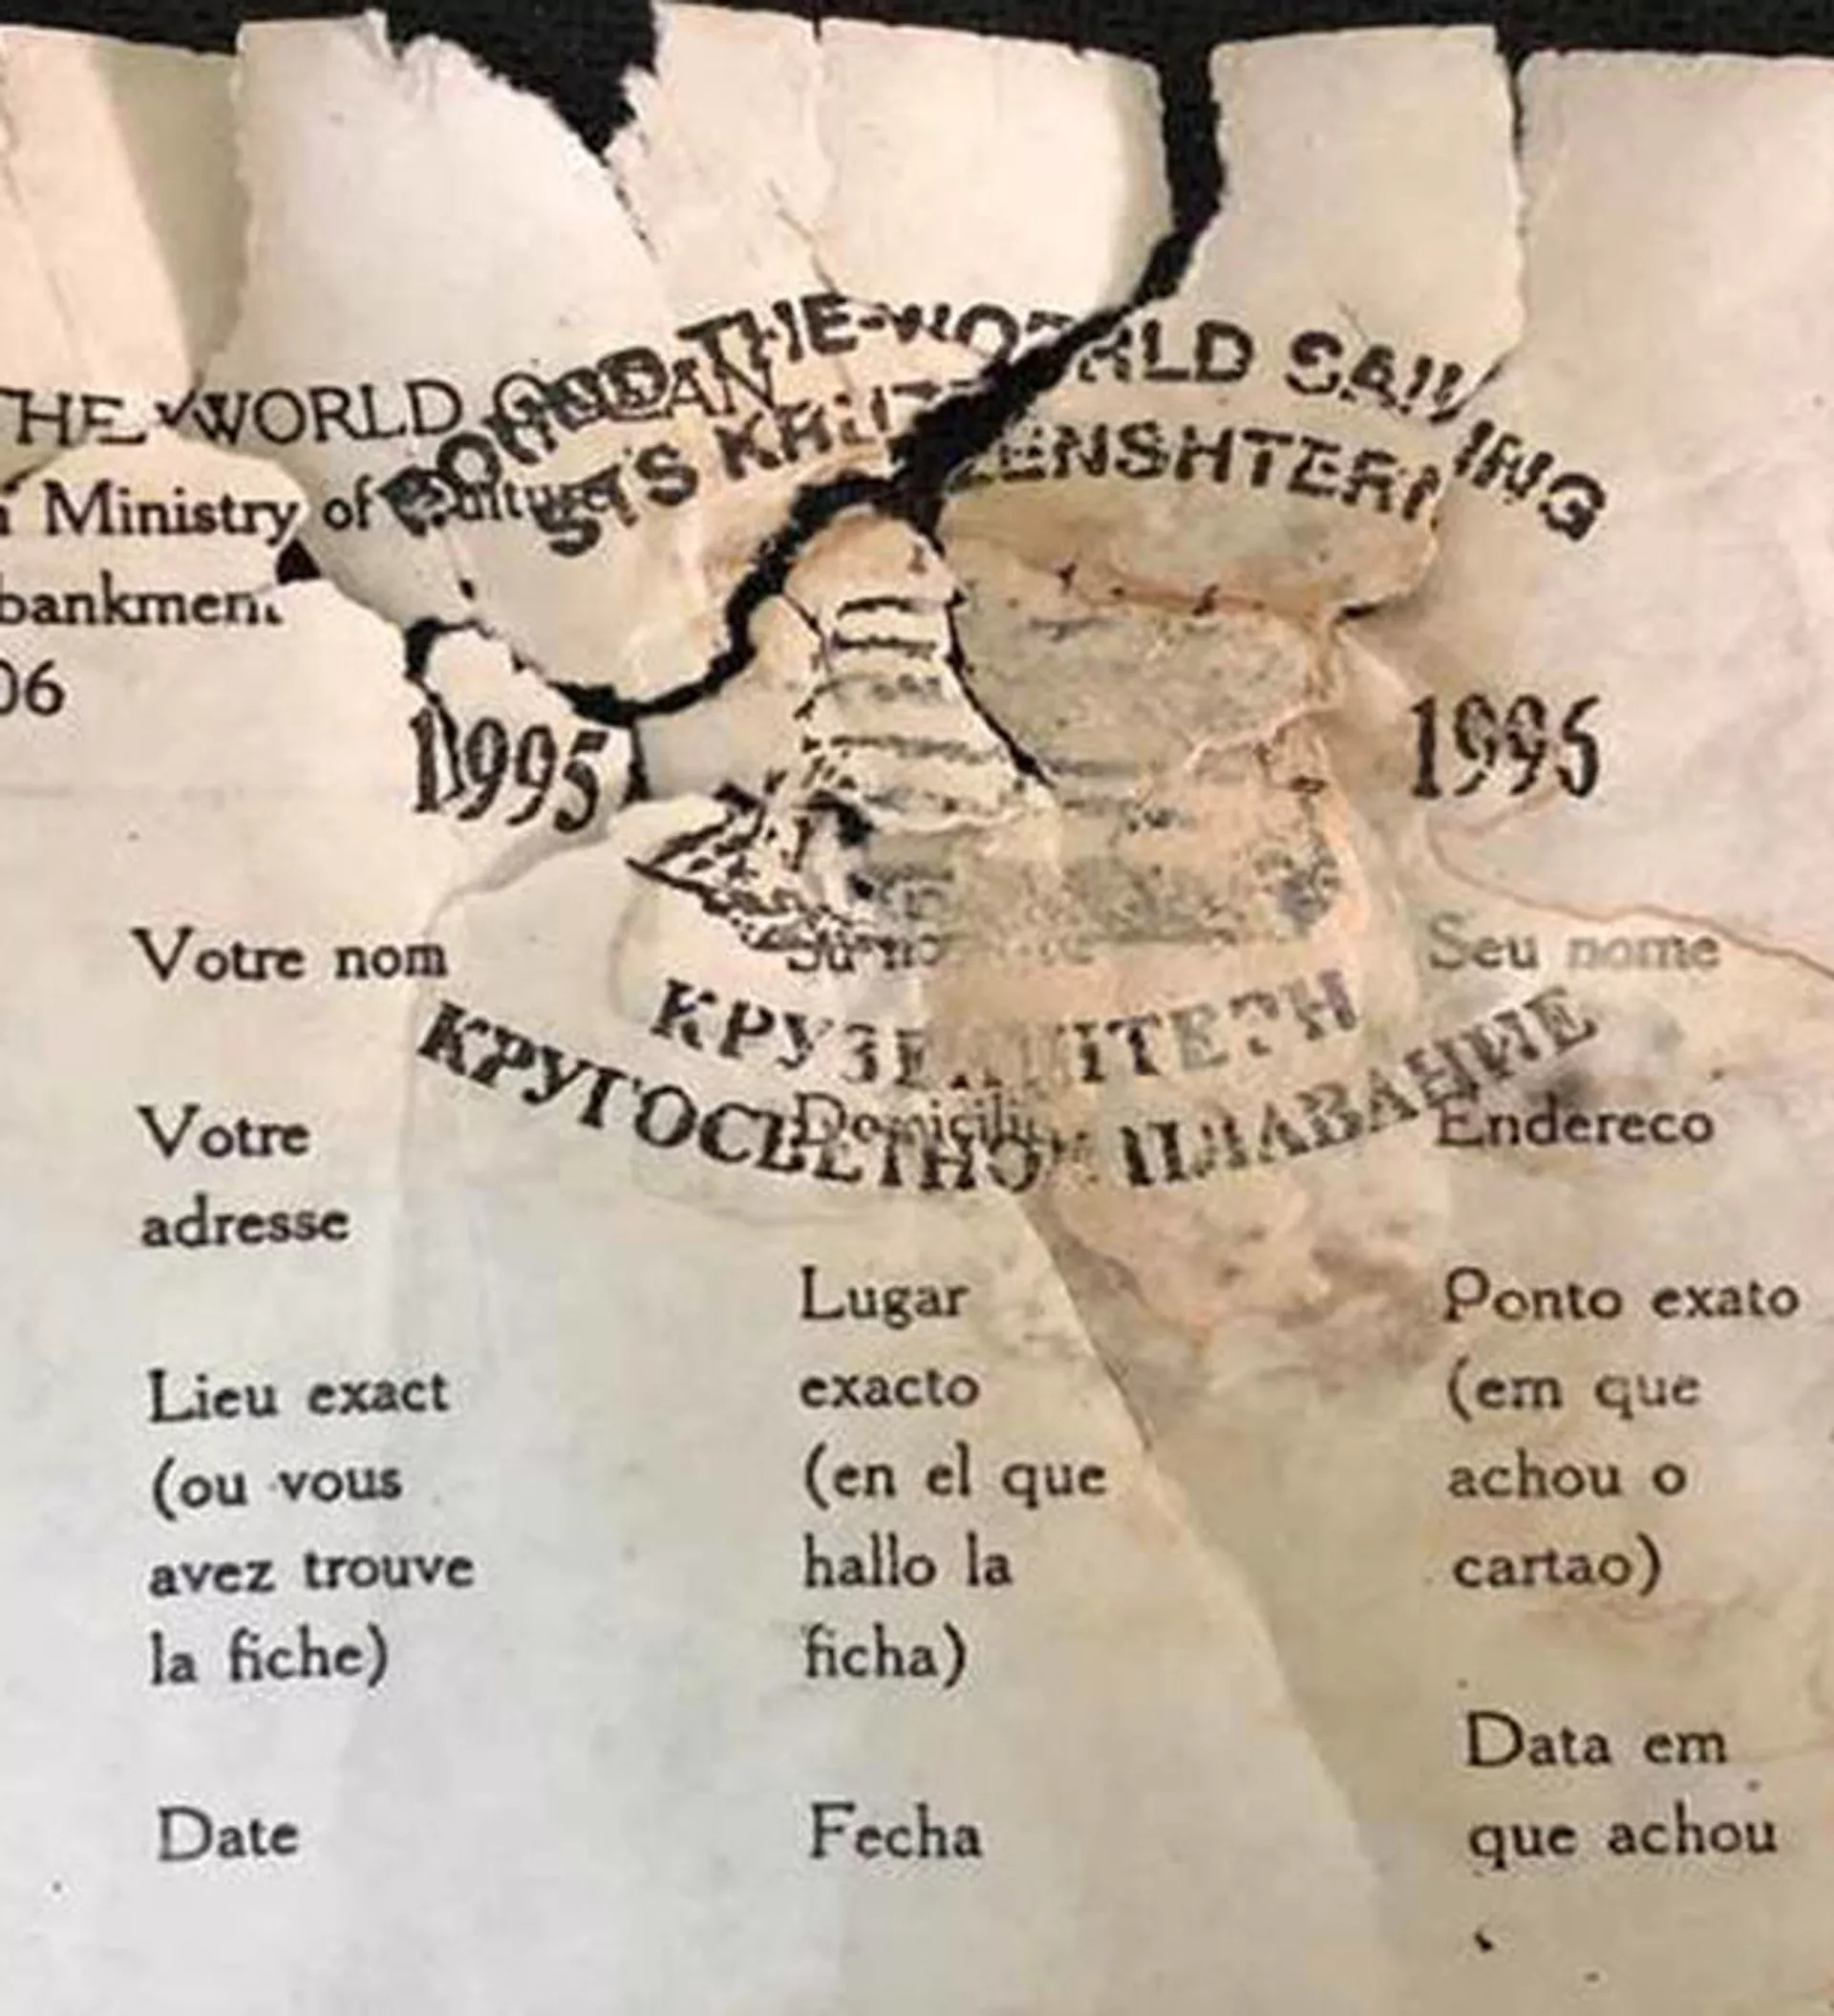 THE WORLD OCEAN
ROUND-THE-WORLD SAILING
Ministry of Culture
STS KRUZENSHTERN
bankment
06
1995
1996
Votre nom
Seu nome
КРУЗЕНШТЕРН
КРУГОСВЕТНОЕ ПЛАВАНИЕ
Votre
Domicilio
Endereco
adresse
Lugar
Ponto exato
Lieu exact
exacto
(em que
(ou vous
(en el que
achou o
avez trouve
hallo la
cartao)
la fiche)
ficha)
Data em
Date
Fecha
que achou